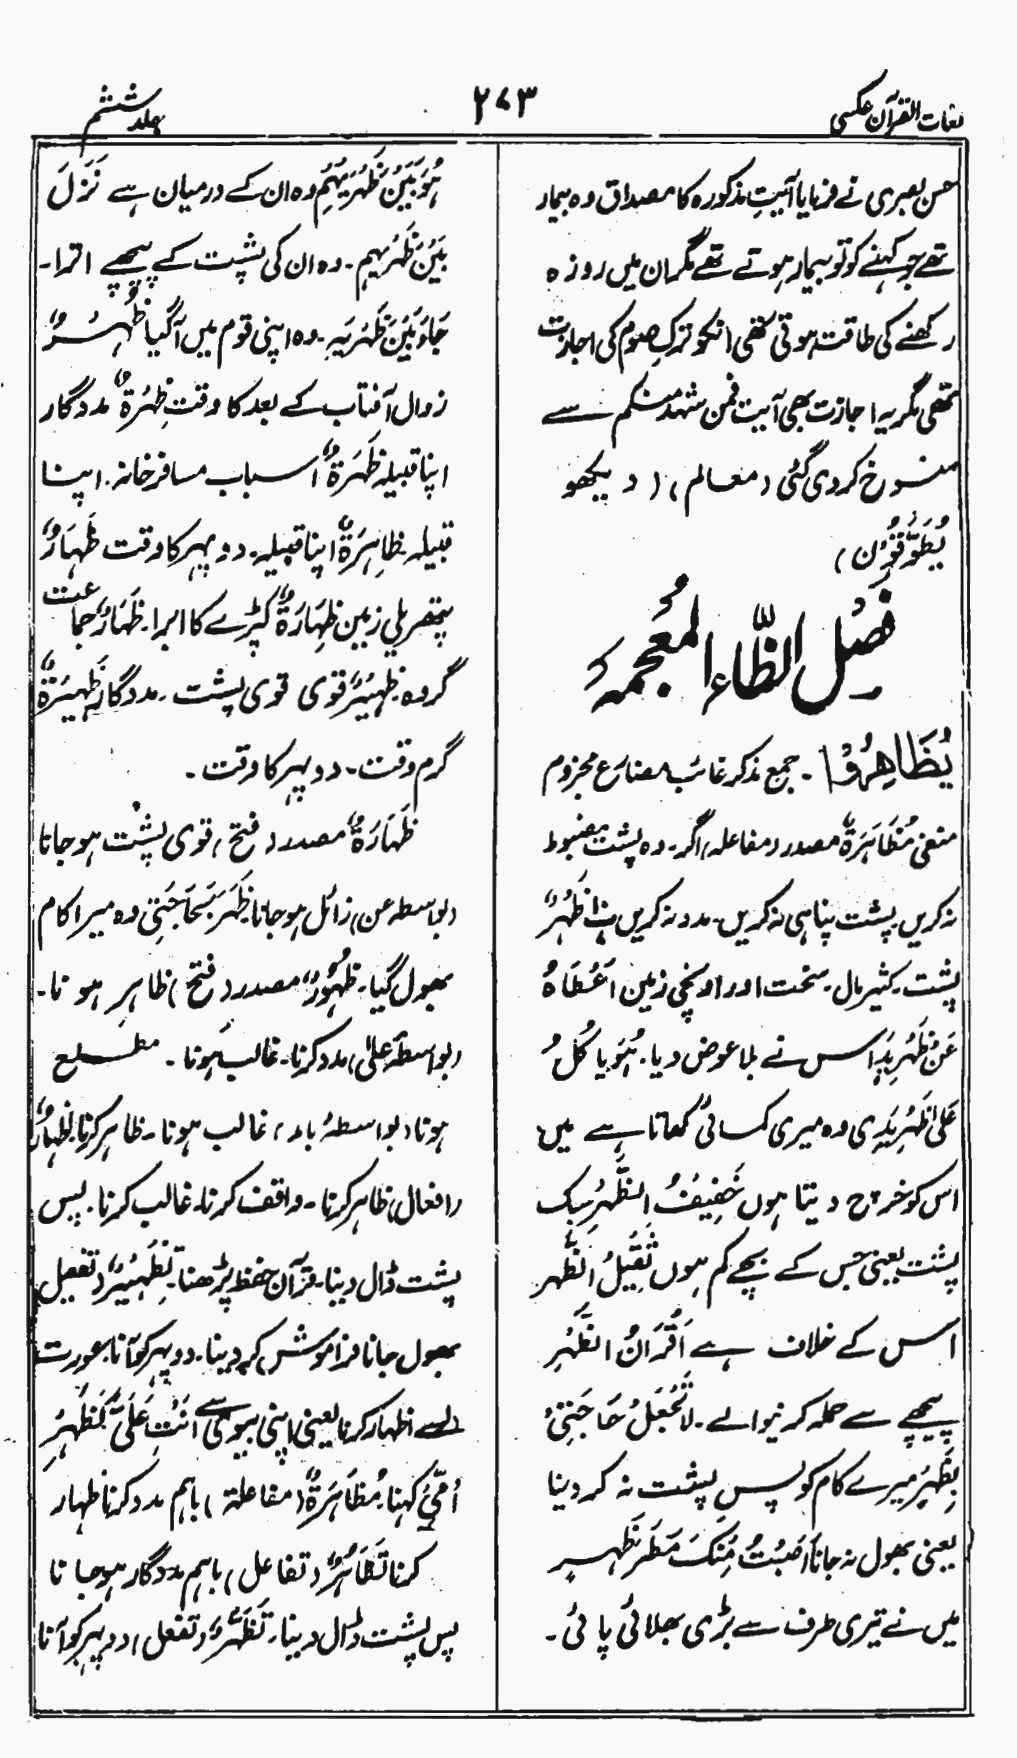 لغات القرآن عکسی
۲۷۳
جلد ششم
حسن بصری نے فرمایا آیتِ مذکورہ کا مصداق وہ بیمار
تھے جو کہنے کو تو بیمار ہوتے تھے مگر ان میں روزہ
رکھنے کی طاقت ہوتی تھی انکو ترکِ صوم کی اجازت
تھی مگر یہ اجازت بھی آیت فَمَن شَہِدَ مِنکُم سے
منسوخ کردی گئی (معالم) (دیکھو
یُطَوَّقُوْنَ)
فَصْل الظَّاءِ الْمُعْجَمَہ
یُظَاہِرُوْا ۔ جمع مذکر غائب مضارع مجزوم
منفی مُظَاہَرَۃٌ مصدر (مفاعلہ) اگر ۔ وہ پشت مضبوط
نہ کریں پشت پناہی نہ کریں۔ مدد نہ کریں ظَہْرٌ
پشت ۔ کثیر مال ۔ سخت اور اونچی زمین اَعْطَاہُ
عَنْ ظَہْرِ یَدٍ اس نے بلا عوض دیا ۔ ہُوَ یَاکُلُ
عَلیٰ ظَہْرِ یَدِی وہ میری کمائی کھاتا ہے میں
اس کو خرچ دیتا ہوں خَفِیْفُ الظَّہْرِ سبک
پشت یعنی جس کے بچے کم ہوں ثَقِیْلُ الظَّہْرِ
اس کے خلاف ہے اَقْرَانُ الظَّہْرِ
پیچھے سے حملہ کرنیوالے ۔ لَا تَجْعَلْ حَاجَتِیْ
بِظَہْرٍ میرے کام کو پسِ پشت نہ کردینا
یعنی بھول نہ جانا اَصَبْتُ مِنْکَ مَطَرَ ظَہْرٍ
میں نے تیری طرف سے بڑی بھلائی پائی ۔
ہُوَ بَیْنَ ظَہْرَیْہِمْ وہ ان کے درمیان ہے نَزَلَ
بَیْنَ ظَہْرَیْہِم ۔ وہ ان کی پشت کے پیچھے اترا ۔
جَاءَ بَیْنَ ظَہْرَیْہِ ۔ وہ اپنی قوم میں آگیا ظُہْرٌ
زوال آفتاب کے بعد کا وقت ظِہْرَۃٌ مددگار
اپنا قبیلہ ظَہَرَۃٌ اسباب مسافر خانہ ۔ اپنا
قبیلہ ظَاہِرَۃٌ اپنا قبیلہ ۔ دوپہر کا وقت ظَہَارٌ
پتھریلی زمین ظِہَارَۃٌ کپڑے کا ابرا ۔ ظَہَارٌ جماعت
گروہ ۔ ظَہِیْرٌ قوی قوی پشت ۔ مددگار ظَہِیْرَۃٌ
گرم وقت ۔ دوپہر کا وقت ۔
ظَہَارَۃٌ مصدر (فتح) قوی پشت ہوجانا
(بواسطہ عن) زائل ہوجانا ظَہَرَ بِحَاجَتِیْ وہ میرا کام
بھول گیا ۔ ظُہُوْرٌ مصدر (فتح) ظاہر ہونا ۔
(بواسطہ علیٰ) مدد کرنا ۔ غالب ہونا ۔ مطلع
ہونا (بواسطۂ باء) غالب ہونا ۔ ظاہر کرنا اِظْہَارٌ
(افعال) ظاہر کرنا ۔ واقف کرنا ۔ غالب کرنا ۔ پس
پشت ڈال دینا ۔ قرآن حفظ پڑھنا ۔ تَظْہِیْرٌ (تفعیل)
بھول جانا فراموش کردینا ۔ دوپہر کو آنا ۔ عورت
سے اظہار کرنا یعنی اپنی بیوی سے اَنْتِ عَلَیَّ کَظَہْرِ
اُمِّیْ کہنا مُظَاہَرَۃٌ (مفاعلۃ) باہم مدد کرنا ظہار
کرنا تَظَاہُرٌ (تفاعل) باہم مددگار ہوجانا
پس پشت ڈال دینا ۔ تَظَہُّرٌ (تفعل) دوپہر کو آنا